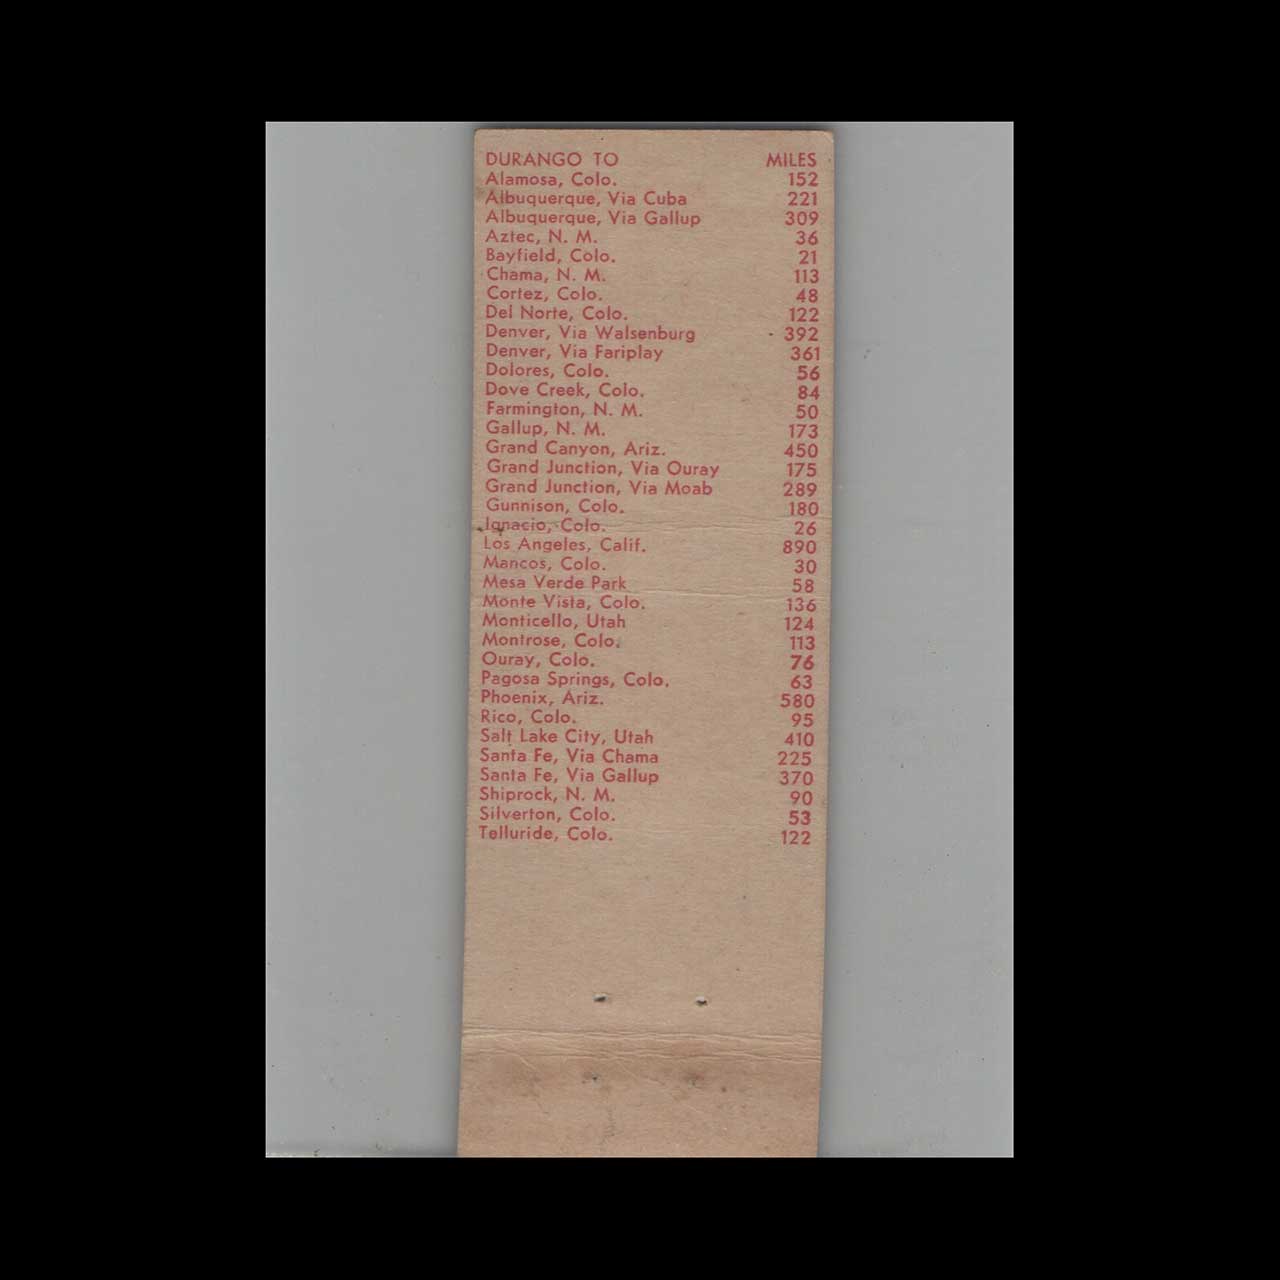 DURANGO TO MILES
Alamosa, Colo. 152
Albuquerque, Via Cuba 221
Albuquerque, Via Gallup 309
Aztec, N. M. 36
Bayfield, Colo. 21
Chama, N. M. 113
Cortez, Colo. 48
Del Norte, Colo. 122
Denver, Via Walsenburg 392
Denver, Via Fariplay 361
Dolores, Colo. 56
Dove Creek, Colo. 84
Farmington, N. M. 50
Gallup, N. M. 173
Grand Canyon, Ariz. 450
Grand Junction, Via Ouray 175
Grand Junction, Via Moab 289
Gunnison, Colo. 180
Ignacio, Colo. 26
Los Angeles, Calif. 890
Mancos, Colo. 30
Mesa Verde Park 58
Monte Vista, Colo. 136
Monticello, Utah 124
Montrose, Colo. 113
Ouray, Colo. 76
Pagosa Springs, Colo. 63
Phoenix, Ariz. 580
Rico, Colo. 95
Salt Lake City, Utah 410
Santa Fe, Via Chama 225
Santa Fe, Via Gallup 370
Shiprock, N. M. 90
Silverton, Colo. 53
Telluride, Colo. 122